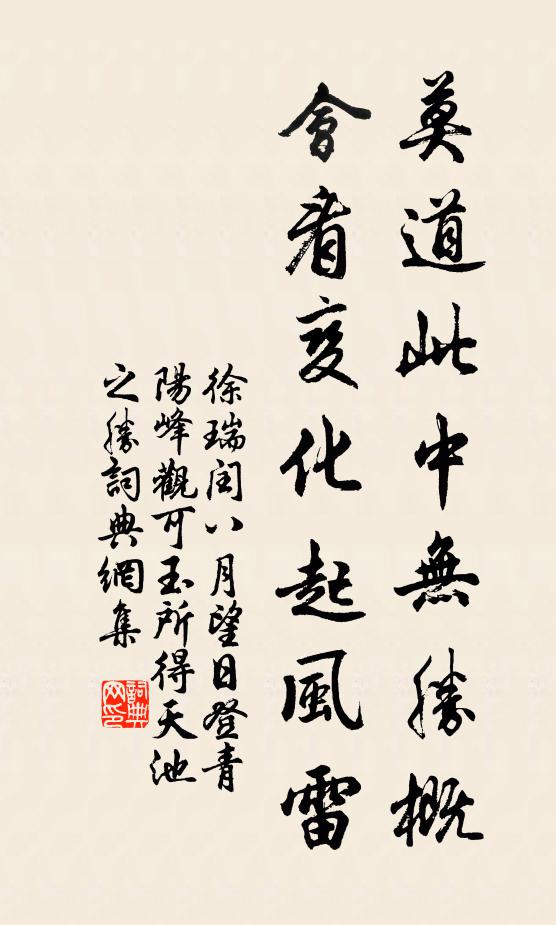 莫道此中無勝概
會看変化起風雷
徐瑞閏八月望日登青
陽峰觀可玉所得天池
之勝詞典網集
詞典网印